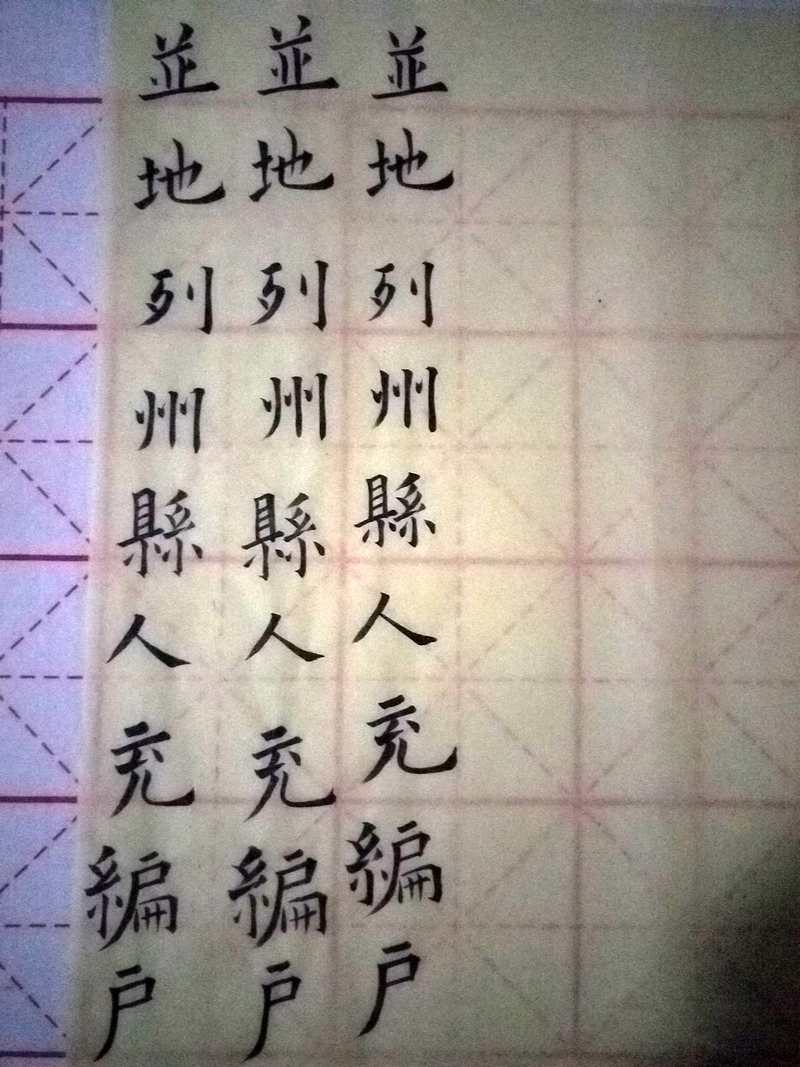 並地列州縣人充編戶
並地列州縣人充編戶
並地列州縣人充編戶